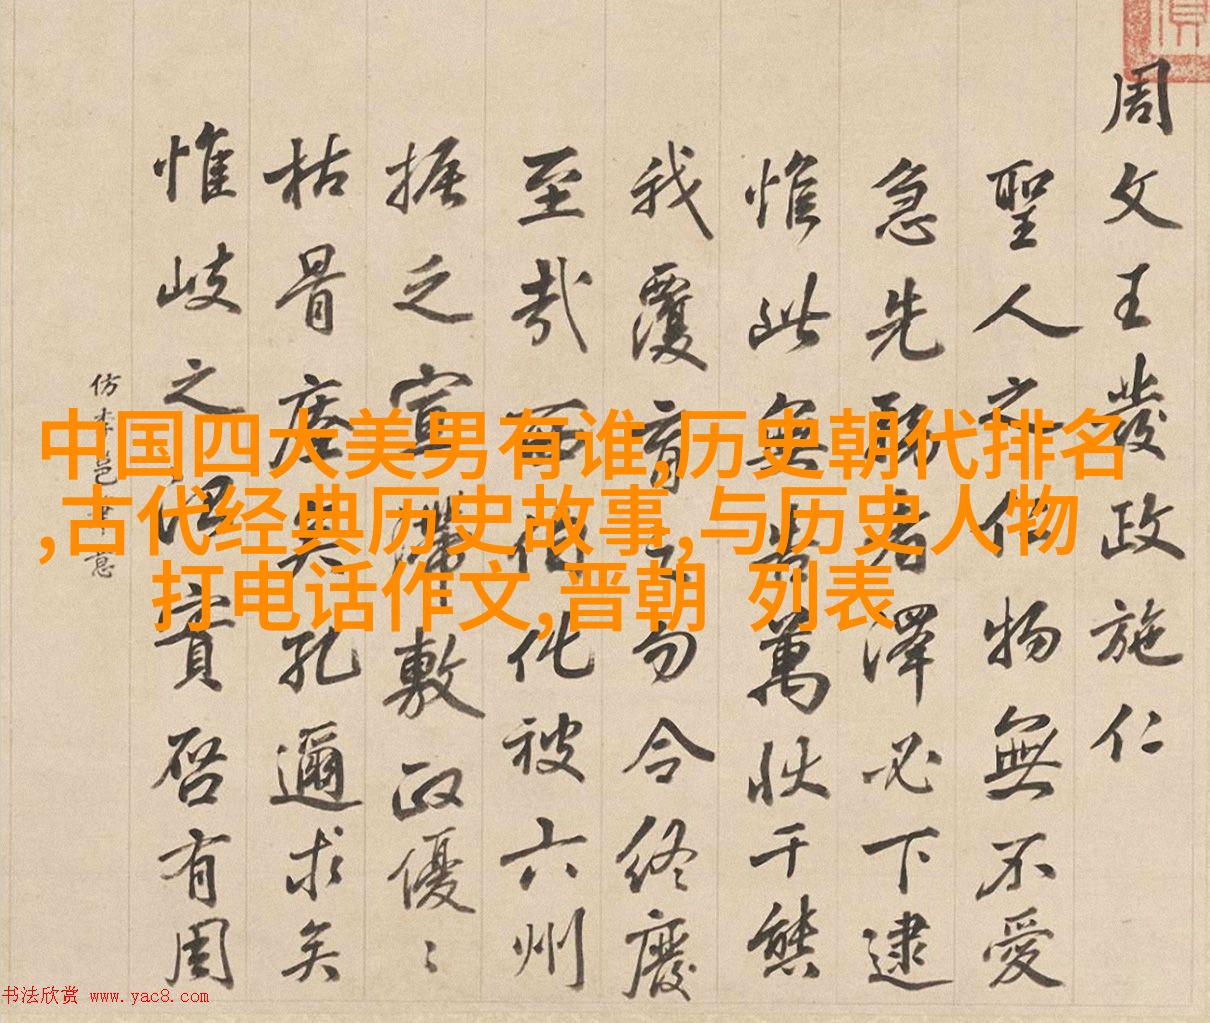 周文王發政施仁
聖人之物無不愛
急先者澤必下逮
惟此無告萬狀千態
我覆育之勿令終廢
至哉西伯化被六州
振之宣敷政優〻
枯骨矣孔邇求矣
惟岐之陽實啓有周
仿李邕筆意
中国四大美男有谁,历史朝代排名
,古代经典历史故事,与历史人物
打电话作文,晋朝 列表
书法欣赏 www.yac8.com